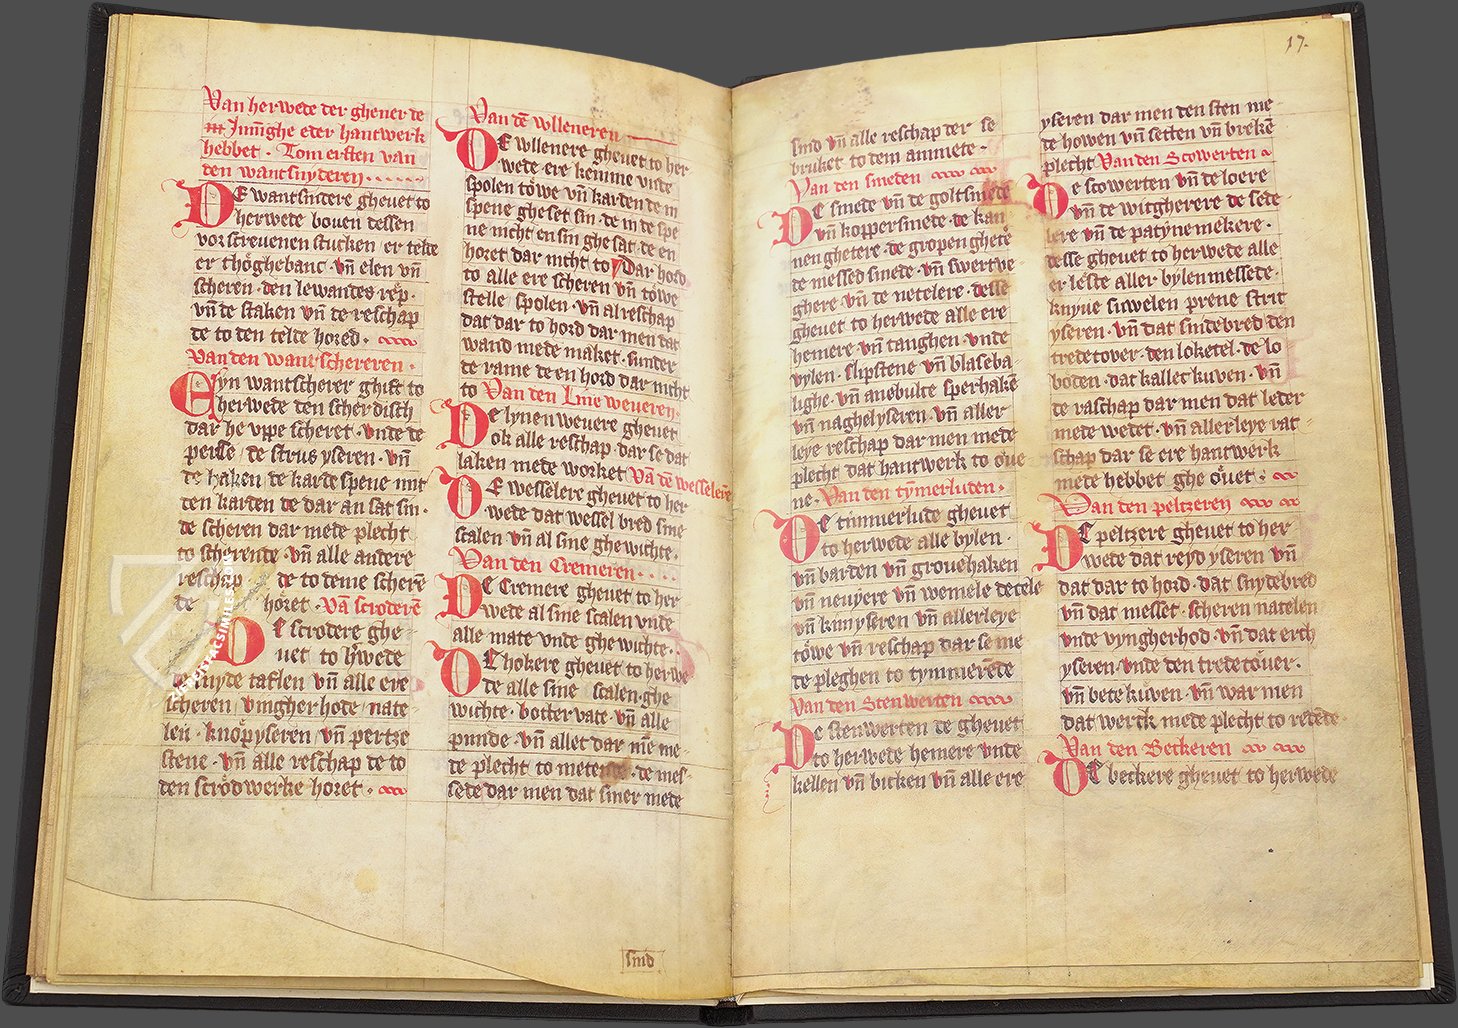 Van herwede der gheuer de
in Junighe eder hantwerk
hebbet. Tom ersten van
den wantsnyderen......
De wantsnidere gheuet to
herwede bouen dessen
vorscreuenen stucken er telde
er thoͤghebanc. vn̄ elen vn̄
scheren. den lewandes rep.
vn̄ de staken vn̄ de reschap
de to den telde hored.
Van den wantschereren.
Eyn wantscherer ghift to
herwede den scherdisch
dar he vppe scheret. vnde de
perse, de struf yseren. vn̄
de haken de karde spene mit
den karden de dar an sat sin.
de scheren dar mede plecht
to scherende. vn̄ alle andere
reschap. de to deme schere
de horet. Vā scroderē
De scrodere ghe-
uet to h'wede
de snyde taflen vn̄ alle ere
scheren vingherhode nate-
len. knoͤpyseren vn̄ pertze
stene. vn̄ alle reschap de to
den scroͤdwerke horet.
Van dē wlleneren
De wllenere gheuet to her
wede. ere kemme vnde
spolen toͤwe vn̄ karden de in
spene gheset sin. de in de spe
ne nicht en sin ghesat. de en
horet dar nicht to Dar hord
to alle ere scheren vn̄ toͤwe
stelle spolen. vn̄ al reschap
dat dar to hord dar men dat
wand mede maket. sunder
de rame de en hord dar nicht
to Van den Line weueren.
De lynenweuere gheuet
ok alle reschap. dar se dat
laken mede worket Vā dē wesselerē
De wesselere gheuet to her
wede dat wessel bred sine
scalen vn̄ al sine ghewichte.
Van den Cremeren....
De Cremere gheuet to her
wede al sine scalen vnde
alle mate vnde ghewichte..
De hokere gheuet to herwe
de alle sine scalen. ghe
wichte. botter vate. vn̄ alle
punde. vn̄ allet dar mē me-
de plecht to metende. de mes-
sede dar men dat smer mede
smid
17.
snid vn̄ alle reschap der se
bruket to dem ammete.
Van den smeden
De smede vn̄ de goltsmede
vn̄ koppersmede. de kan
nenghetere. de gropen ghete͛
de messed smede. vn̄ swertve-
ghere. vn̄ de netelere. desse
gheuet to herwede alle ere
hemere. vn̄ tanghen. vnde
vylen. slipstene. vn̄ blaseba
lighe. vn̄ anebulte sperhakē
vn̄ naghelyseren. vn̄ aller
leye reschap dar men mede
plecht dat hantwerk to oͤue
ne. Van den tȳmerluden.
De timmerlude gheuet
to herwede alle bylen.
vn̄ barden vn̄ grouehaken
vn̄ neuyere vn̄ wemele detele
vn̄ kimyseren vn̄ allerleye
toͤwe vn̄ reschap dar se me
de pleghen to tymmerēde
Van den Stenwerten
De stenwerten de gheuet
to herwede hemere vnde
kellen vn̄ bicken vn̄ alle ere
yseren dar men den sten me-
de howen vn̄ setten vn̄ brekē
plecht Van den Scowerten
De scowerten vn̄ de loere
vn̄ de witgherere de sede-
lere vn̄ de patynemekere.
desse gheuet to herwede alle
er leͤste aller bylenmessede.
knyue suwelen prene strit
yseren. vn̄ dat snidebred den
tredetover. den loketel. de lo
boden. dat kallet kuven. vn̄
de raschap dar men dat leder
mede wedet. vn̄ allerleye rat-
schap dar se ere hantwerk
mede hebbet ghe oͤuet.
Van den peltzeren
De peltzere gheuet to her
wede dat reyd yseren vn̄
dat dar to hord. dat snydebred
vn̄ dat messet. scheren natelen
vnde vyngherhod. vn̄ dat erch
yseren. vnde den tredetoͤuer.
vn̄ bete kuͤwen. vn̄ war men
dat werck mede plecht to redēde.
Van den Beckeren
De beckere gheuet to herwede